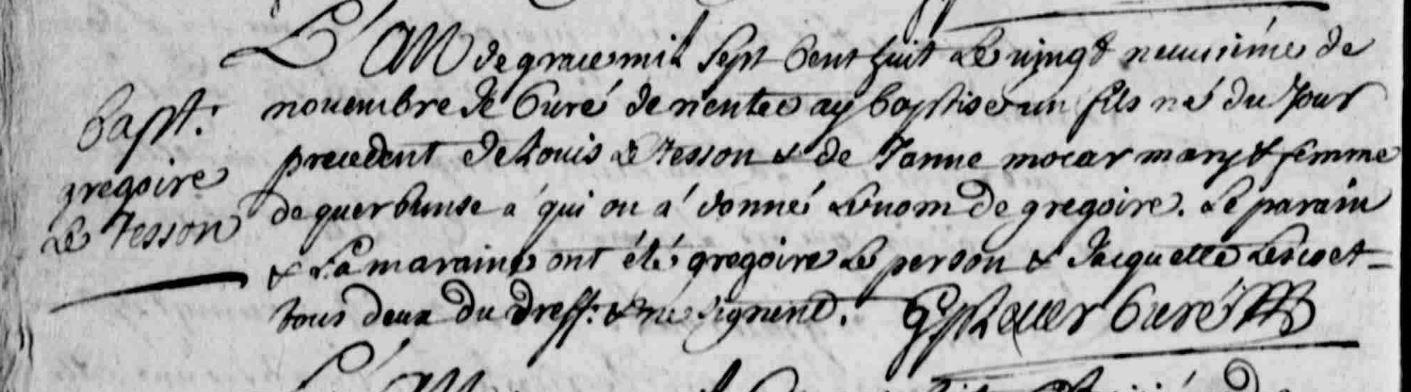 L'An de grace mil sept cent huit Le vingt neuvieme de
novembre Je Curé de nentec ay baptisé un fils né du Jour
precedent de Louis Le Tesson & de Janne mocar mary & femme
de querbunse a qui on a donné Le nom de gregoire. Le parain
& La maraine ont été gregoire Le person & Jacquette Lescoet
tous deux du dress.t & ne signent. Curé
bapt.
gregoire
Le Tesson